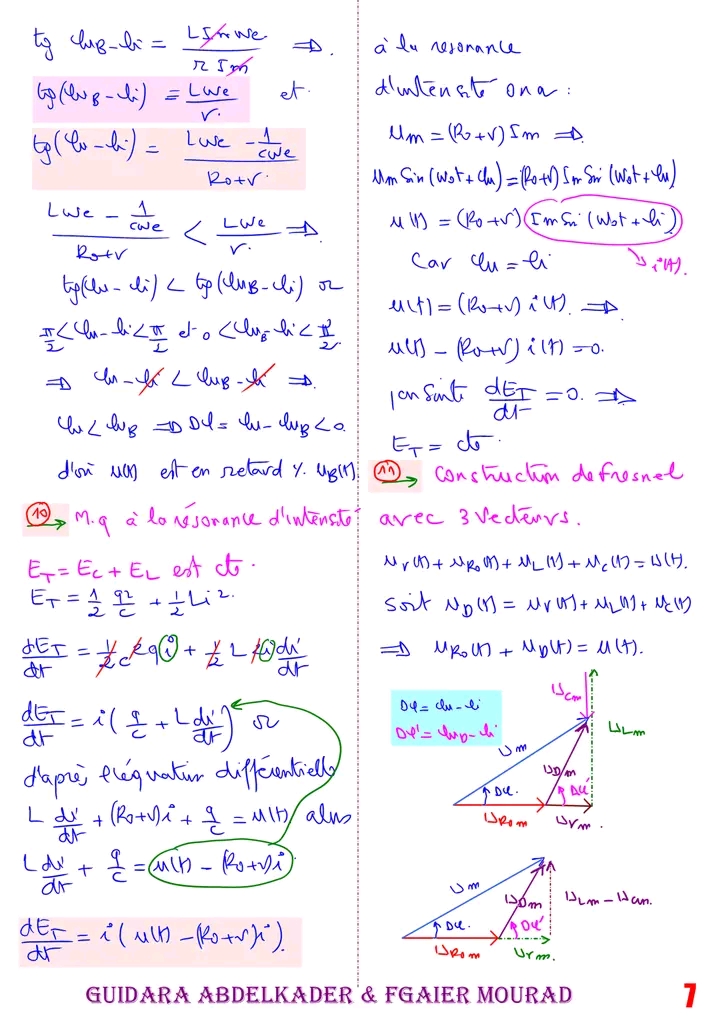 tg φuB - φi = LImωe / rIm ⇒.
tg(φuB - φi) = Lωe / r et
tg(φu - φi) = (Lωe - 1/cωe) / (R0+r)
(Lωe - 1/cωe) / (R0+r) < Lωe / r ⇒
tg(φu - φi) < tg(φuB - φi) or
π/2 < φu - φi < π/2 et 0 < φuB - φi < π/2
⇒ φu - φi < φuB - φi ⇒
φu < φuB ⇒ Δφ = φu - φuB < 0
d'où u(t) est en retard % uB(t).
10 → M.q à la résonance d'intensité
ET = EC + EL est cte.
ET = 1/2 q²/c + 1/2 Li².
dET/dt = 1/2c 2qi + 1/2 L 2i di/dt
dET/dt = i(q/c + L di/dt) or
d'après l'équation différentielle
L di/dt + (R0+r)i + q/c = u(t) alors
L di/dt + q/c = u(t) - (R0+r)i
dET/dt = i(u(t) - (R0+r)i).
à la resonance
d'intensité on a :
Um = (R0+r) Im ⇒
Um Sin(ω0t + φu) = (R0+r) Im Sin(ω0t + φu)
u(t) = (R0+r) Im Sin(ω0t + φi)
Car φu = φi
i(t).
u(t) = (R0+r) i(t). ⇒
u(t) - (R0+r) i(t) = 0.
par suite dET/dt = 0. ⇒
ET = cte.
11 → Construction de fresnel
avec 3 vecteurs.
ur(t) + uR0(t) + uL(t) + uc(t) = u(t).
soit uD(t) = ur(t) + uL(t) + uc(t)
⇒ uR0(t) + uD(t) = u(t).
Δφ = φu - φi
Δφ' = φuD - φi
Ucm
ULm
Um
UDm
Δφ
Δφ'
UR0m
Urm.
Um
UDm
ULm - Ucm.
Δφ
Δφ'
UR0m
Urm.
GUIDARA ABDELKADER & FGAIER MOURAD
7